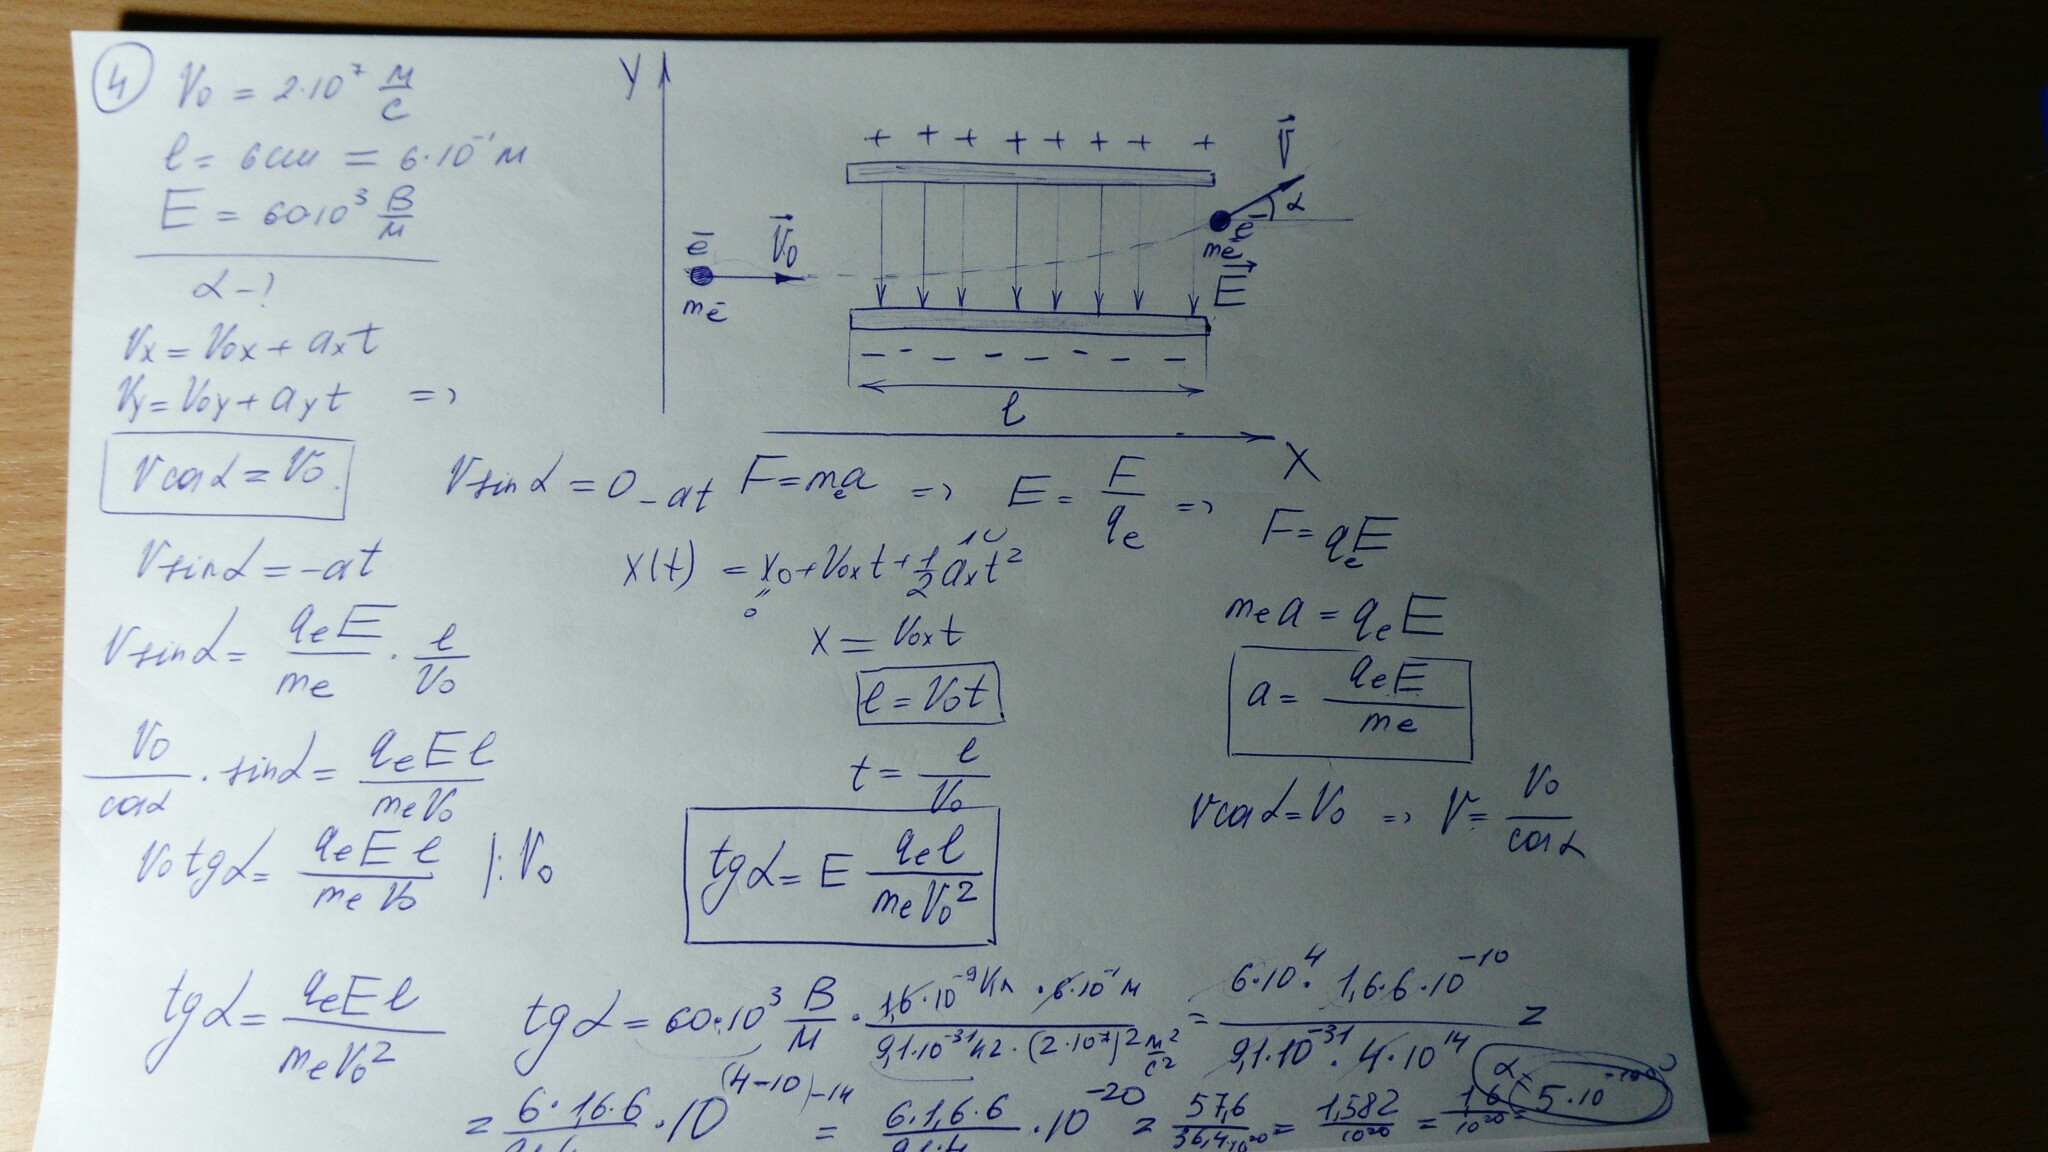 4
V₀ = 2·10⁷ м/с
l = 6 см = 6·10⁻¹ м
E = 60·10³ В/м
α - ?
Vx = V₀x + axt
Vy = V₀y + ayt =>
Vcosα = V₀.
Y
+ + + + + + + +
V⃗
α
ē
mē
ē
V⃗₀
mē
E⃗
- - - - - - - -
l
X
Vsinα = 0 - at F = mₑa => E = F/qₑ => F = qₑE
Vsinα = -at
x(t) = x₀ + V₀xt + 1/2 axt²
0
0
mₑa = qₑE
Vsinα = qₑE/mₑ · l/V₀
x = V₀xt
l = V₀t
a = qₑE/mₑ
V₀/cosα · sinα = qₑEl/mₑV₀
t = l/V₀
Vcosα = V₀ => V = V₀/cosα
V₀tgα = qₑEl/mₑV₀ |:V₀
tgα = E qₑl/mₑV₀²
tgα = qₑEl/mₑV₀²
tgα = 60·10³ В/м · 1,6·10⁻⁹ Кл · 6·10⁻¹ м / 9,1·10⁻³¹ кг · (2·10⁷)² м²/с² = 6·10⁴ · 1,6·6·10⁻¹⁰ / 9,1·10⁻³¹ · 4·10¹⁴ =
= 6·1,6·6 / · 10⁽⁴⁻¹⁰⁾⁻¹⁴ = 6·1,6·6 / 9,1·4 · 10⁻²⁰ = 57,6 / 36,4·10²⁰ = 1,582 / 10²⁰ = 1,6 / 10²⁰ =
α = 5·10